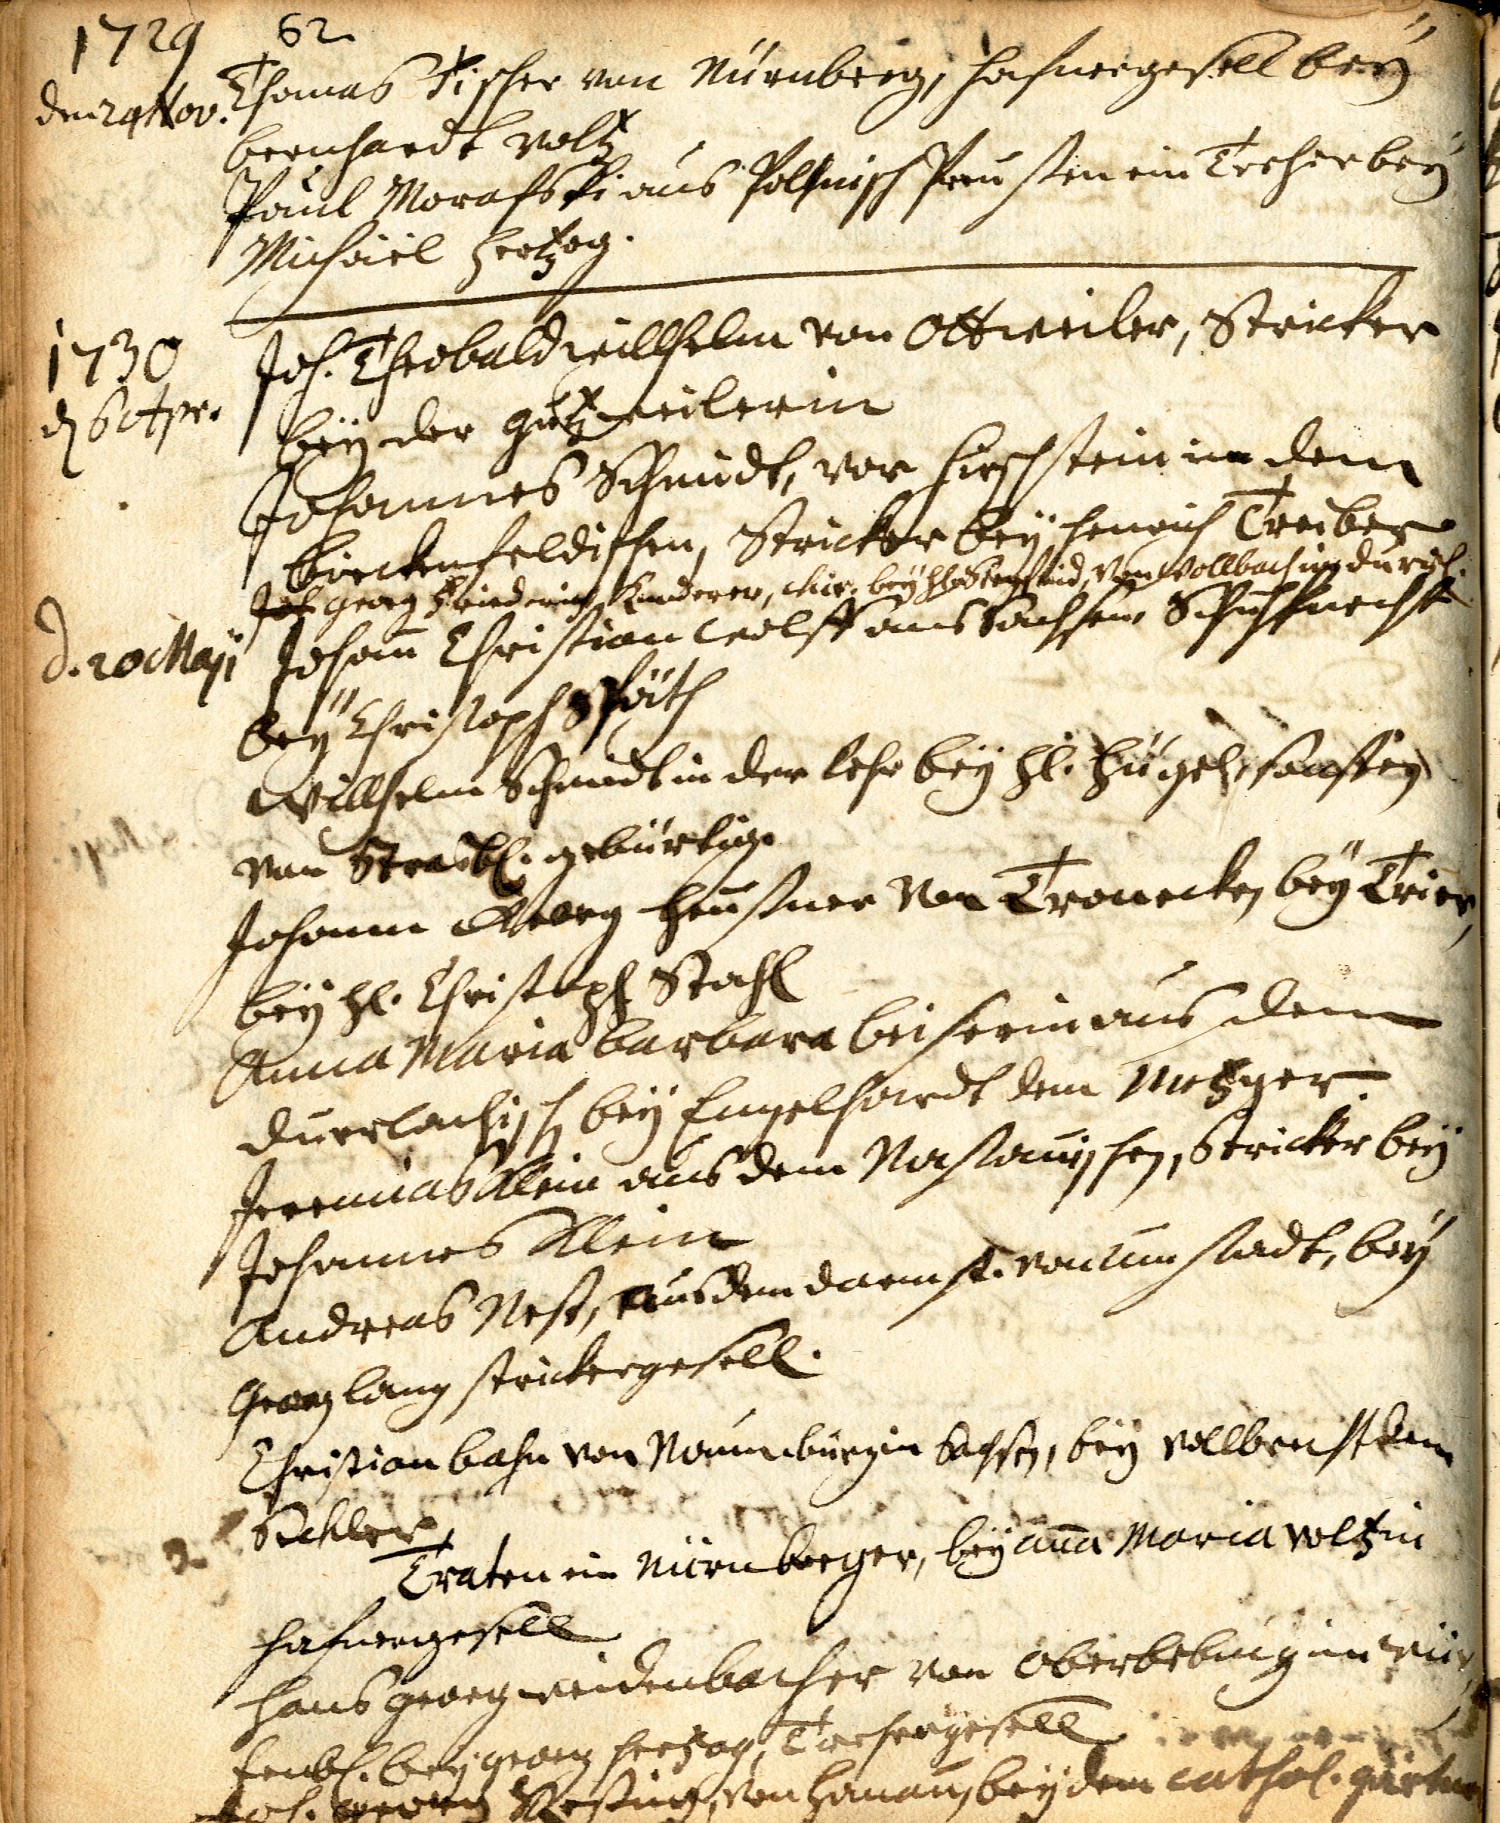 1729 62
den 29 Nov. Thomas Fischer von Nürnberg, hafnergesell beÿ
bernhardt voltz
Paul Morafski aus Polnisch Preussen ein Treher beÿ
Michäel Hertzog.
1730 Joh. Theobald willhelm von Ottweiler, Stricker
d 6 Apr. beÿ der gutzweilerin
Johannes Schmidt, von Hirschstein in dem
birckenfeldischen, Stricker beÿ henrich Treiber
Joh. georg Friderich Kunderer, chir. beÿ von Vollbach im durl.
d. 20 Maji Johann Christian Wolff aus Sachsen Schuhknecht
beÿ Christoph Späth
Willhelm Schmidt in der lehr beÿ Hl. Hügel,
von Strasb. gebürtig.
Johann Georg Heussner von Tronecken beÿ Trier,
beÿ Hl. Christoph Stahl
Anna Maria barbara beiserin aus dem
durlachisch beÿ Engelhardt dem Metzger.
Jeremias Klein aus dem Nassauischen, Stricker beÿ
Johannes Klein
Andreas Nest, aus dem darmst. von umstadt, beÿ
Georg lang strickergesell.
Christian bahn von Naumburg in Sachsen, beÿ vollbrecht dem
Sekler
Traten ein Nürnberger, beÿ Anna Maria voltzin
hafnergesell
Hans georg weidenbacher von Oberbebing im Wür
tenb. beÿ georg Hertzog, Trehergesell
Joh. georg von Hanau, beÿ dem cathol. gärtner